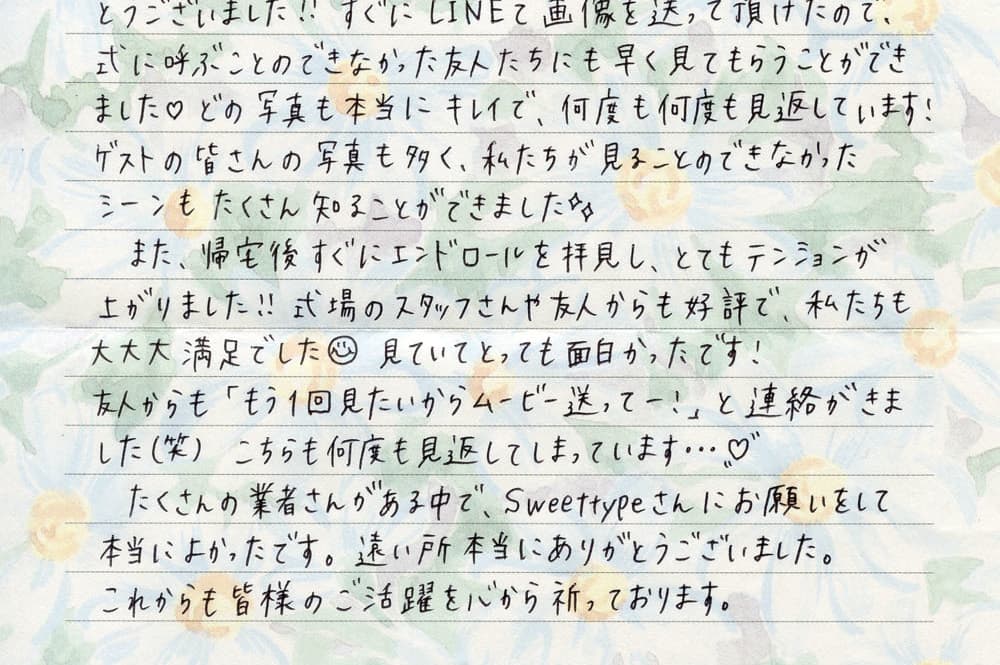 とうございました!! すぐにLINEで画像を送って頂けたので、
式に呼ぶことのできなかった友人たちにも早く見てもらうことができ
ました♡ どの写真も本当にキレイで、何度も何度も見返しています!
ゲストの皆さんの写真も多く、私たちが見ることのできなかった
シーンもたくさん知ることができました✧
また、帰宅後すぐにエンドロールを拝見し、とてもテンションが
上がりました!! 式場のスタッフさんや友人からも好評で、私たちも
大大大満足でした☺ 見ていてとっても面白かったです!
友人からも「もう1回見たいからムービー送ってー!」と連絡がきま
した(笑) こちらも何度も見返してしまっています…♡
たくさんの業者さんがある中で、Sweettypeさんにお願いをして
本当によかったです。遠い所本当にありがとうございました。
これからも皆様のご活躍を心から祈っております。